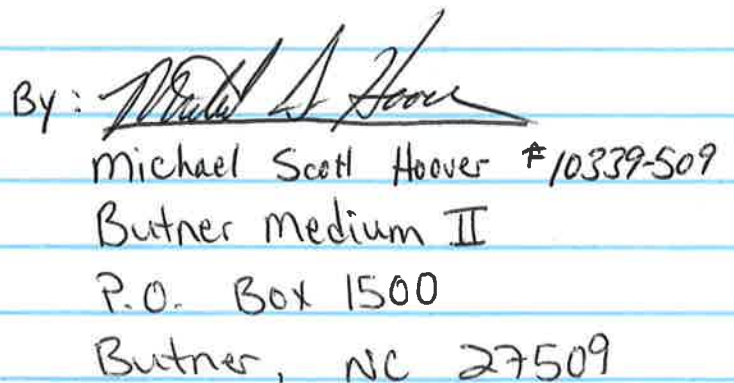 By: Michael S Hoover
Michael Scott Hoover #10339-509
Butner Medium II
P.O. Box 1500
Butner, NC 27509